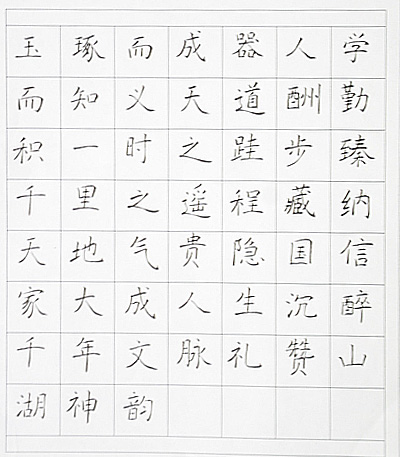 玉琢而成器人学
而知义天道酬勤
积一时之跬步臻
千里之遥程藏纳
天地气贵隐国信
家大成人生沉醉
千年文脉礼赞山
湖神韵